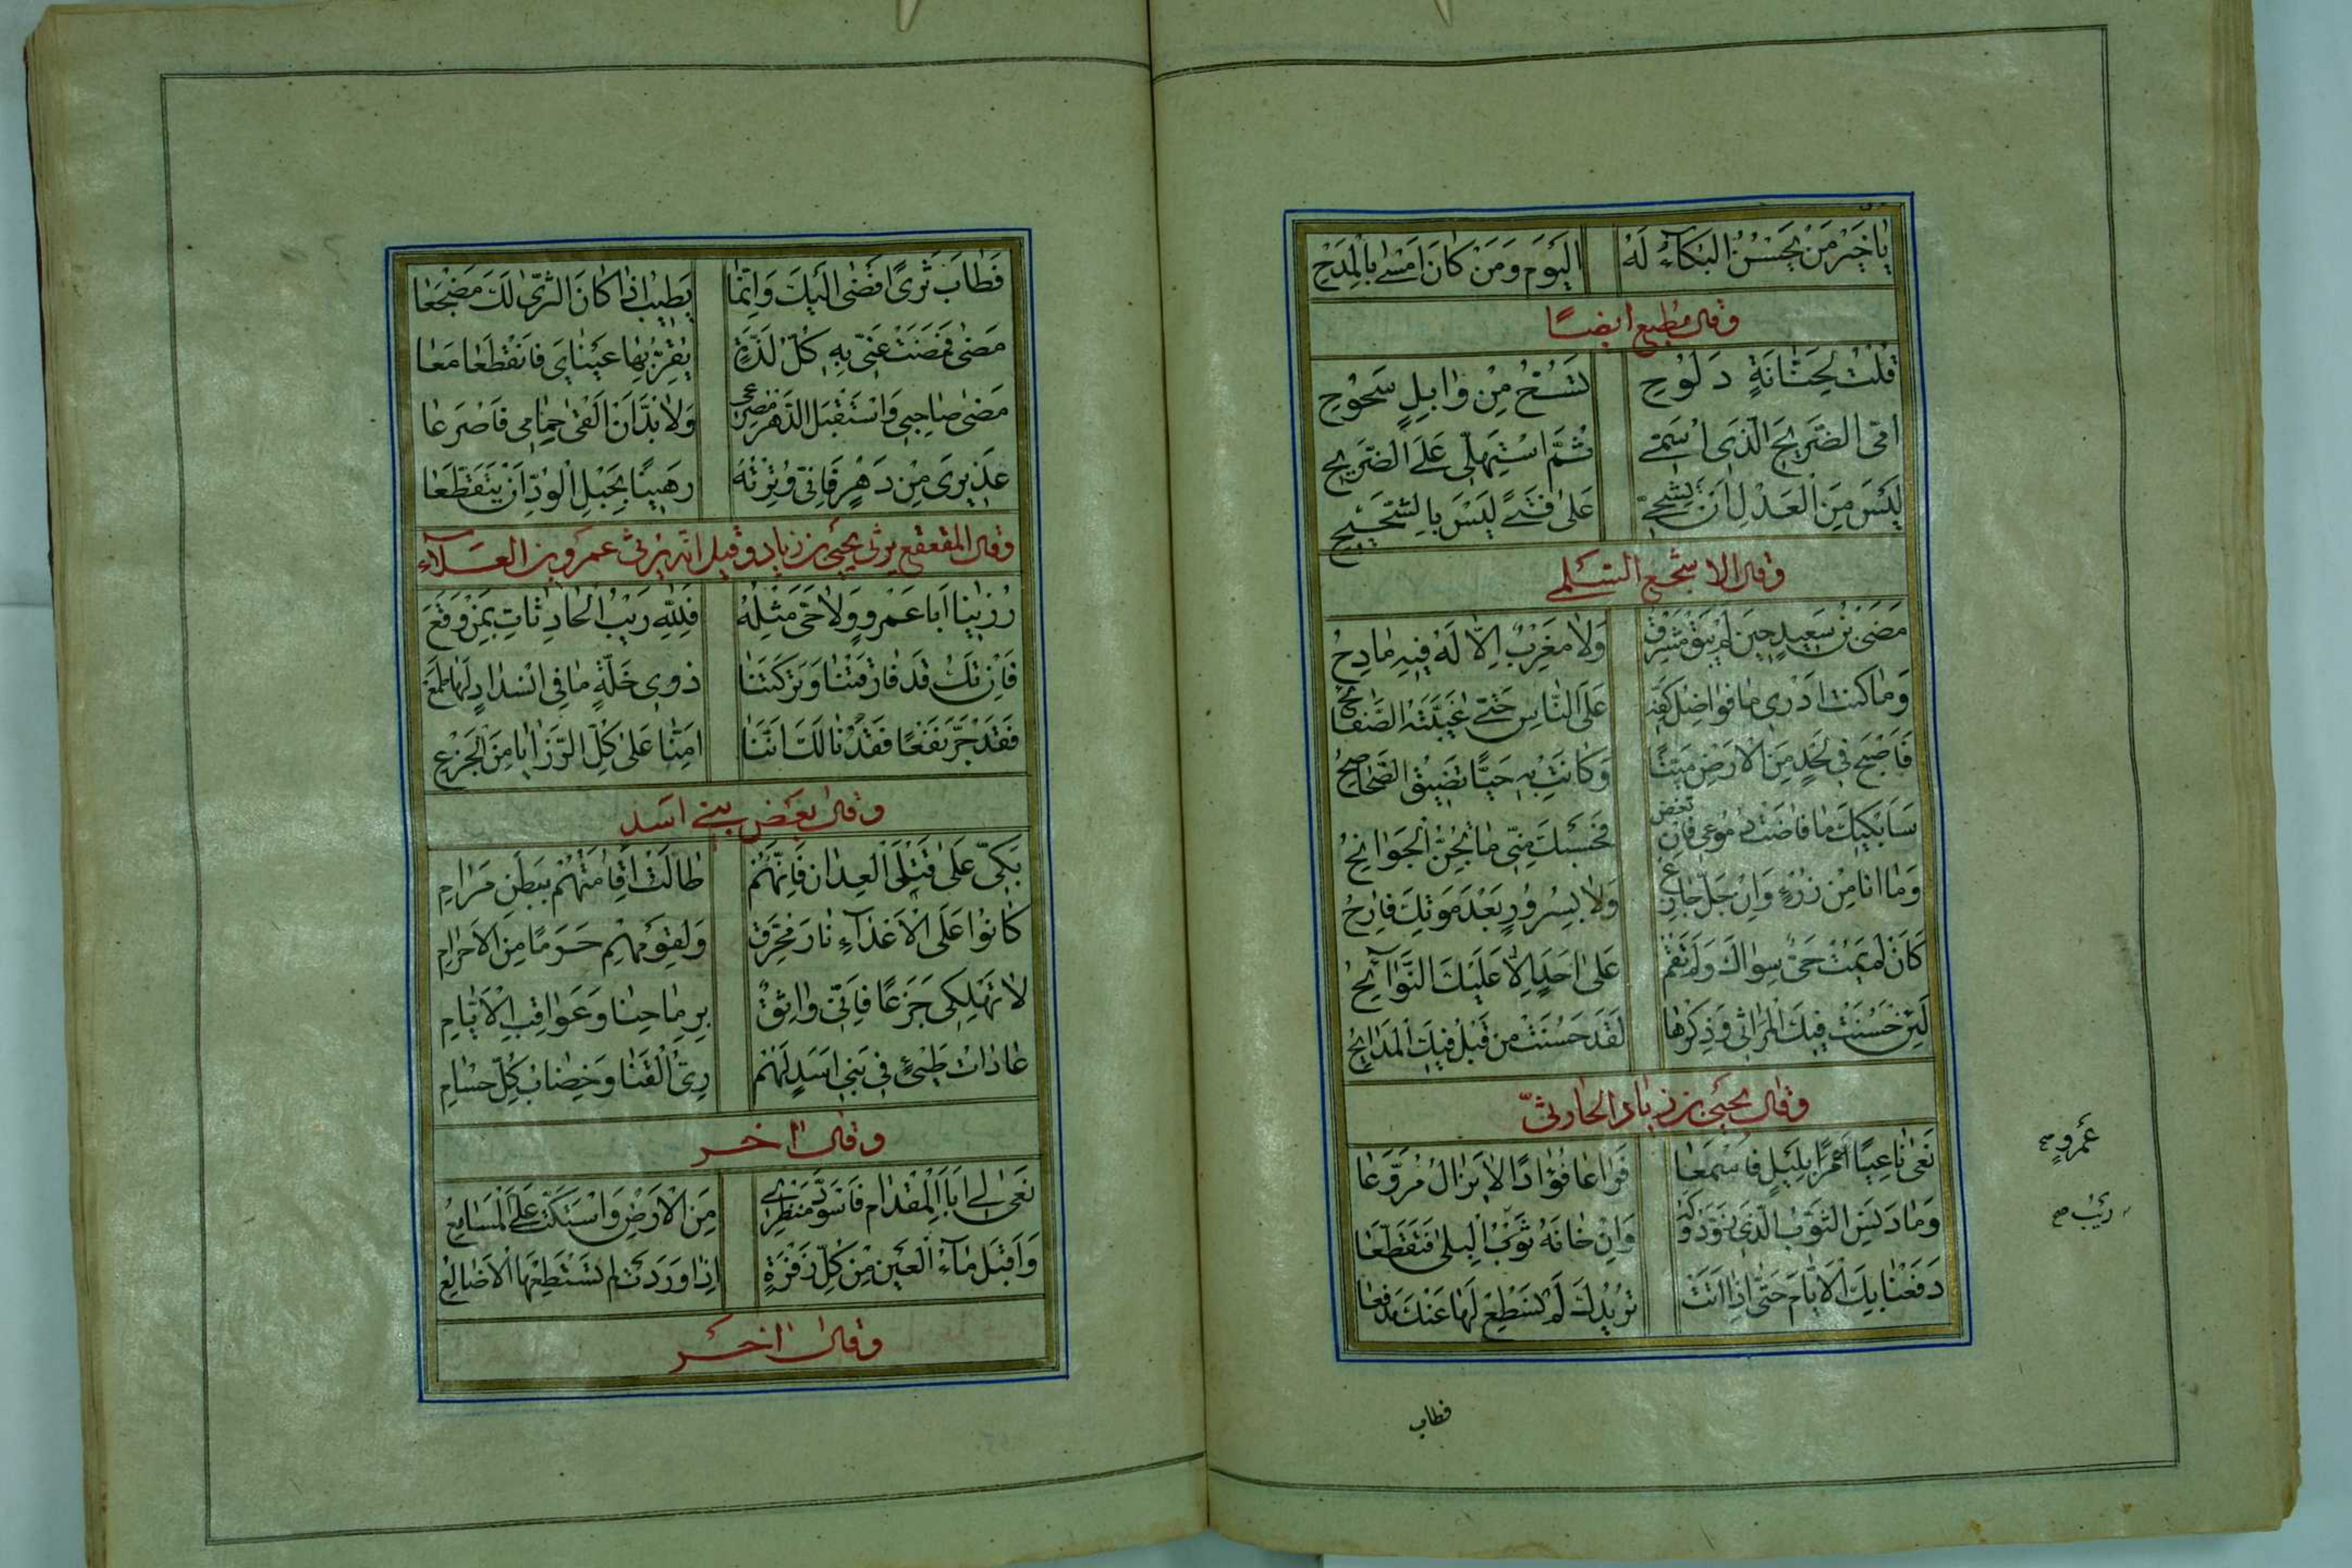 يا خَيْرَ مَنْ يَحْسُنُ البُكَآءُ لَهُ اليَومَ وَمَنْ كانَ اَمْسِ بِالمِدَحِ
وقال مطيع ايضًا
قُلْتُ لِحَنّانَةٍ دَلُوحِ تَسُحُّ مِنْ وابِلٍ سَحُوحِ
اُمّي الضَّريحَ الَّذي اُسَمّي ثُمَّ اسْتَهِلّي عَلَى الضَّريحِ
لَيْسَ مِنَ العَدْلِ اَنْ تَشُحّي عَلى فَتًى لَيْسَ بِالشَّحيحِ
وقال الاشجع السلمي
مَضَى بْنُ سَعيدٍ حينَ لَمْ يَبْقَ مَشْرِقٌ وَلا مَغْرِبٌ اِلّا لَهُ فيهِ مادِحُ
وَما كُنْتُ اَدْري ما فَواضِلُ كَفِّهِ عَلَى النّاسِ حَتّى غَيَّبَتْهُ الصَّفائِحُ
فَاَصْبَحَ في لَحْدٍ مِنَ الاَرْضِ مَيِّتًا وَكانَتْ بِهِ حَيًّا تَضيقُ الصَّحاصِحُ
سَاَبْكيكَ ما فاضَتْ دُمُوعي فَاِنْ تَغِضْ فَحَسْبُكَ مِنّي ما تُجِنُّ الجَوانِحُ
وَما اَنا مِنْ رُزْءٍ وَاِنْ جَلَّ جازِعٌ وَلا بِسُرُورٍ بَعْدَ مَوتِكَ فارِحُ
كَاَنْ لَمْ يَمُتْ حَيٌّ سِواكَ وَلَمْ تَقُمْ عَلى اَحَدٍ اِلّا عَلَيْكَ النَّوآئِحُ
لَئِنْ حَسُنَتْ فيكَ المَراثي وَذِكْرُها لَقَدْ حَسُنَتْ مِنْ قَبْلُ فيكَ المَدايِحُ
وقال يحيى بن زياد الحارثيّ
نَعى ناعِيًا عَمْرًا بِلَيْلٍ فَاَسْمَعا فَراعا فُؤادًا لا يَزالُ مُرَوَّعا
وَما دَنِسَ الثَّوْبُ الَّذي زَوَّدُوكَهُ وَاِنْ خانَهُ ثَوْبُ البِلى فَتَقَطَّعا
دَفَعْنا بِكَ الاَيّامَ حَتّى اِذا اَتَتْ تُريدُكَ لَمْ نَسْطِعْ لَها عَنْكَ مَدْفَعا
عمرو صح
ريب صح
فطاب
فَطابَ ثَرًى اَفْضى اِلَيْكَ وَاِنَّما يَطيبُ اِذا كانَ الثَّرى لَكَ مَضْجَعا
مَضى فَمَضَتْ عَنّي بِهِ كُلُّ لَذَّةٍ يَقِرُّ بِها عَيْنايَ فَانْقَطَعا مَعا
مَضى صاحِبي وَاسْتَقْبَلَ الدَّهْرُ مَصْرَعي وَلا بُدَّ اَنْ اَلْقى حِمامي فَاُصْرَعا
عَذيري مِنْ دَهْرٍ فَاِنّي وُتِرْتُهُ رَهينًا بِحَبْلِ الوُدِّ اَنْ يَتَقَطَّعا
وقال المقعقع يرثي يحيى بن زياد وقيل انه يرثي عمرو بن العلآء
رُزِينا اَبا عَمْرٍو وَلا حَيَّ مِثْلُهُ فَلِلّهِ رَيْبُ الحادِثاتِ بِمَنْ وَقَعَ
فَاِنْ تَكُ قَدْ فارَقْتَنا وَتَرَكْتَنا ذَوي خَلَّةٍ ما في انْسِدادٍ لَها طَمَعُ
فَقَدْ جَرَّ نَفْعًا فَقْدُنا لَكَ اَنَّنا اَمِنّا عَلى كُلِّ الرَّزايا مِنَ الجَزَعِ
وقال بعض بني اسد
بَكّي عَلى قَتْلَى العِدانِ فَاِنَّهُمْ طالَتْ اِقامَتُهُمْ بِبَطْنِ مَرامِ
كانُوا عَلَى الاَعْدآءِ نارَ مُحَرِّقٍ وَلِقَوْمِهِمْ حَرَمًا مِنَ الاَحْرامِ
لا تَهْلِكي جَزَعًا فَاِنّي واثِقٌ بِرِماحِنا وَعَواقِبِ الاَيّامِ
عاداتُ طَيِّئٍ في بَني اَسَدٍ لَهُمْ رِيُّ القَنا وَخِضابُ كُلِّ حُسامِ
وقال اخر
نَعى لي اَبَا المِقْدامِ فَاسْوَدَّ مَنْظَري مِنَ الاَرْضِ وَاسْتَكَّتْ عَلَيَّ المَسامِعُ
وَاَقْبَلَ مآءُ العَيْنِ مِنْ كُلِّ زَفْرَةٍ اِذا وَرَدَتْ لَمْ تَسْتَطِعْها الاَضالِعُ
وقال اخر